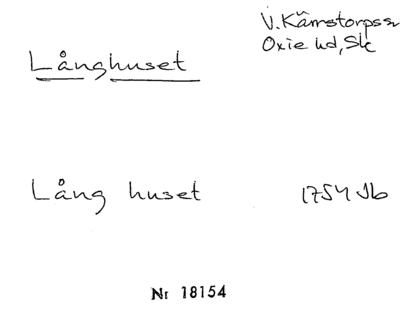 Långhuset
V. Kärrstorps sn
Oxie hd, Sk
Lång huset
1754 Jb
Nr 18154